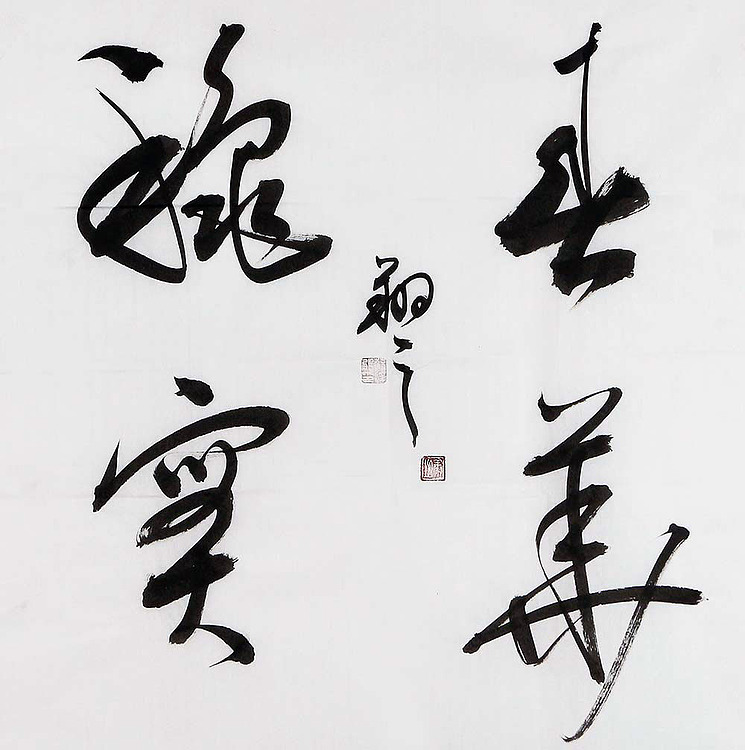 春華
秋實
翔之